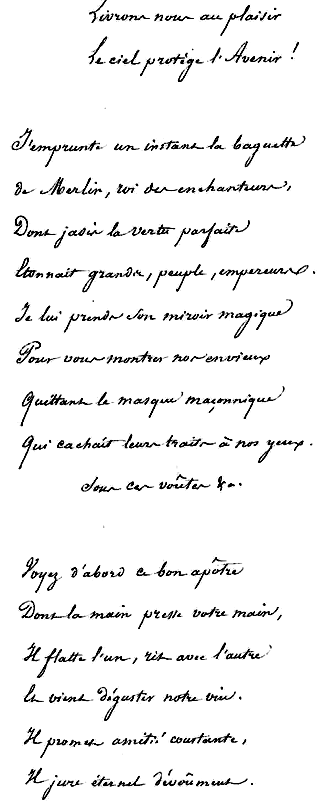 Livrons nous au plaisir
Le ciel protége l'Avenir !
J'emprunte un instant la baguette
de Merlin, roi des enchanteurs,
Dont jadis la vertu parfaite
Etonnait grands, peuple, empereurs.
Je lui prends son miroir magique
Pour vous montrer nos envieux
Quittant le masque maçonnique
Qui cachait leurs traits à nos yeux.
Sous ces voûtes &a.
Voyez d'abord ce bon apôtre
Dont la main presse votre main,
Il flatte l'un, rit avec l'autre
Et vient déguster notre vin.
Il promet amitié constante,
Il jure éternel dévoûment.